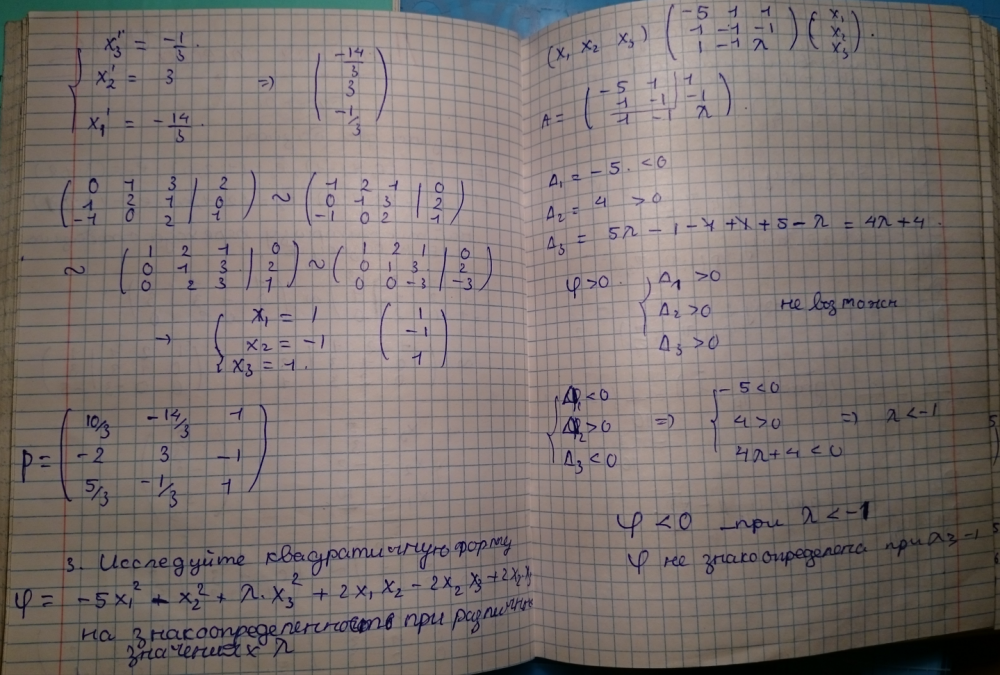 x₃'' = -1/3.
x₂' = 3 ⇒ (-14/3 3 -1/3)
x₁' = -14/3.
(0 1 3 | 2) ~ (1 2 1 | 0)
(1 2 1 | 0) (0 1 3 | 2)
(-1 0 2 | 1) (-1 0 2 | 1)
~ (1 2 1 | 0) ~ (1 2 1 | 0)
(0 1 3 | 2) (0 1 3 | 2)
(0 2 3 | 1) (0 0 -3 | -3)
→ { x₁ = 1 (1
x₂ = -1 -1
x₃ = 1. 1)
P = (10/3 -14/3 1
-2 3 -1
5/3 -1/3 1)
3. Исследуйте квадратичную форму
φ = -5x₁² - x₂² + λ·x₃² + 2x₁x₂ - 2x₂x₃ + 2x₁x₃
на знакоопределенность при различных
значениях λ
(x₁ x₂ x₃) (-5 1 1
1 -1 -1
1 -1 λ) (x₁ x₂ x₃).
A = (-5 1 1
1 -1 -1
1 -1 λ).
Δ₁ = -5. <0
Δ₂ = 4 >0
Δ₃ = 5λ - 1 - 1 + 1 + 5 - λ = 4λ + 4.
φ>0. { Δ₁ >0
Δ₂ >0 не возможн
Δ₃ >0
{ Δ₁ <0 ⇒ { -5<0
Δ₂ >0 4>0 ⇒ λ<-1
Δ₃ <0 4λ+4<0
φ < 0 при λ < -1
φ не знакоопределена при λ ≥ -1